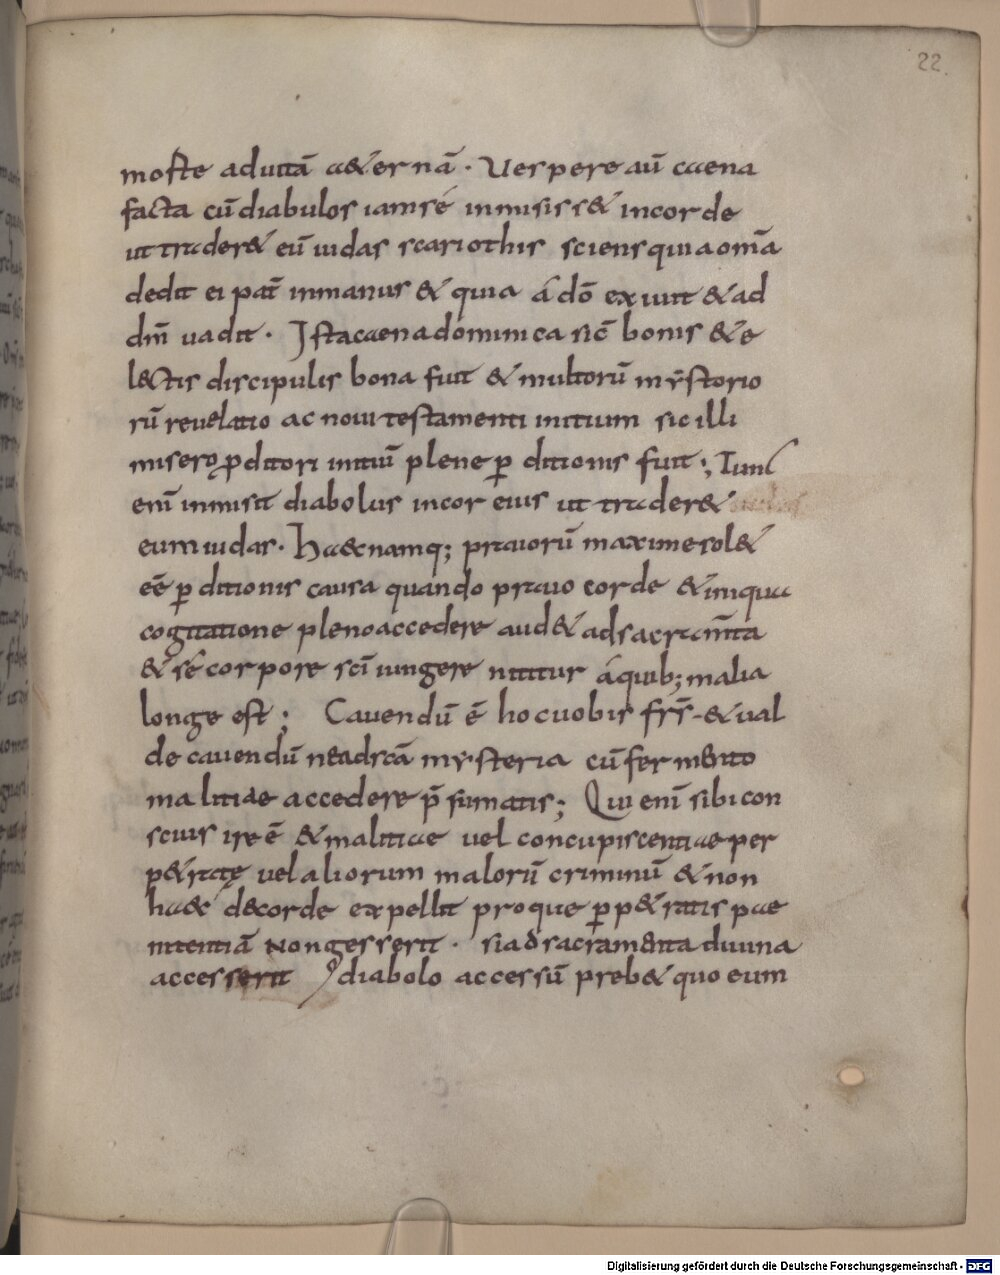 22.
moste ad uitā aet&ernā. Uespere aū caena
facta cū diabulos iam sé inmisiss& incorde
ut trader& eū iudas scariothis sciens quia omā
dedit ei pat̄ inmanus & quia á dō exiuit & ad
dm̄ uadit. Ista caena dominica sic̄ bonis & e
l&ctis discipulis bona fuit & multorū mẏsterio
rū reuelatio ac noui testamenti initium sic illi
misero ꝓditori initiū plene ꝑditionis fuit; Tunc
enī inmisit diabolus incor eius ut trader&
eum iudas. haec namq; prauorū maxime sol&
eē ꝑditionis causa quando prauo corde & iniqua
cogitatione pleno accedere aud& ad sacram̄ta
& sé corpore sc̄i iungere nititur á quib; malia
longe est; Cauendū ē hoc uobis fr̄s & ual
de cauendū ne ad sc̄a mẏsteria cū fermento
malitiae accedere p̄sumatis; Qui enī sibi con
scius ire ē & malitiae uel concupiscentiae per
p&ratę uel aliorum malorū criminū & non
haec de corde expellit proque ꝑp&ratis pae
nitentiā non gesserit. si ad sacramenta diuina
accesserit diabolo accessū preb& quo eum
Digitalisierung gefördert durch die Deutsche Forschungsgemeinschaft - DFG